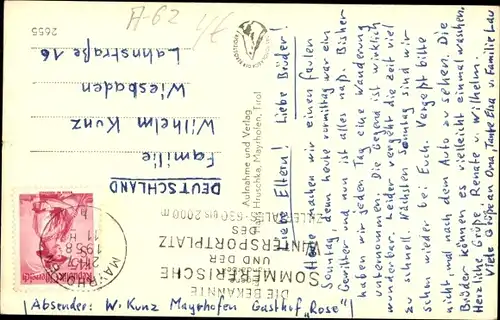 A-62
2655
Liebe Eltern! Liebe Brüder!
Heute machen wir einen faulen
Sonntag denn heute vormittag war ein
Gewitter und nun ist alles naß. Bisher
haben wir jeden Tag eine Wanderung
unternommen. Die Gegend ist wirklich
wunderbar. Leider vergeht die Zeit viel
zu schnell. Nächsten Sonntag sind wir
schon wieder bei Euch. Vergeßt bitte
nicht, mal nach dem Auto zu sehen. Die
Brüder können es vielleicht einmal waschen.
Herzliche Grüße Renate u. Wilhelm.
Viele Grüße an Oma, Tante Elsa u. Familie Lau
Aufnahme und Verlag
Hruschka, Mayrhofen, Tirol
DIE BEKANNTE
SOMMERFRISCHE
UND DER
WINTERSPORTPLATZ
DES
ZILLERTALES · 630 bis 2000 m
MAYRHOFEN
1958
DEUTSCHLAND
Familie
Wilhelm Kunz
Wiesbaden
Lahnstraße 16
Absender: W. Kunz Mayrhofen Gasthof „Rose"